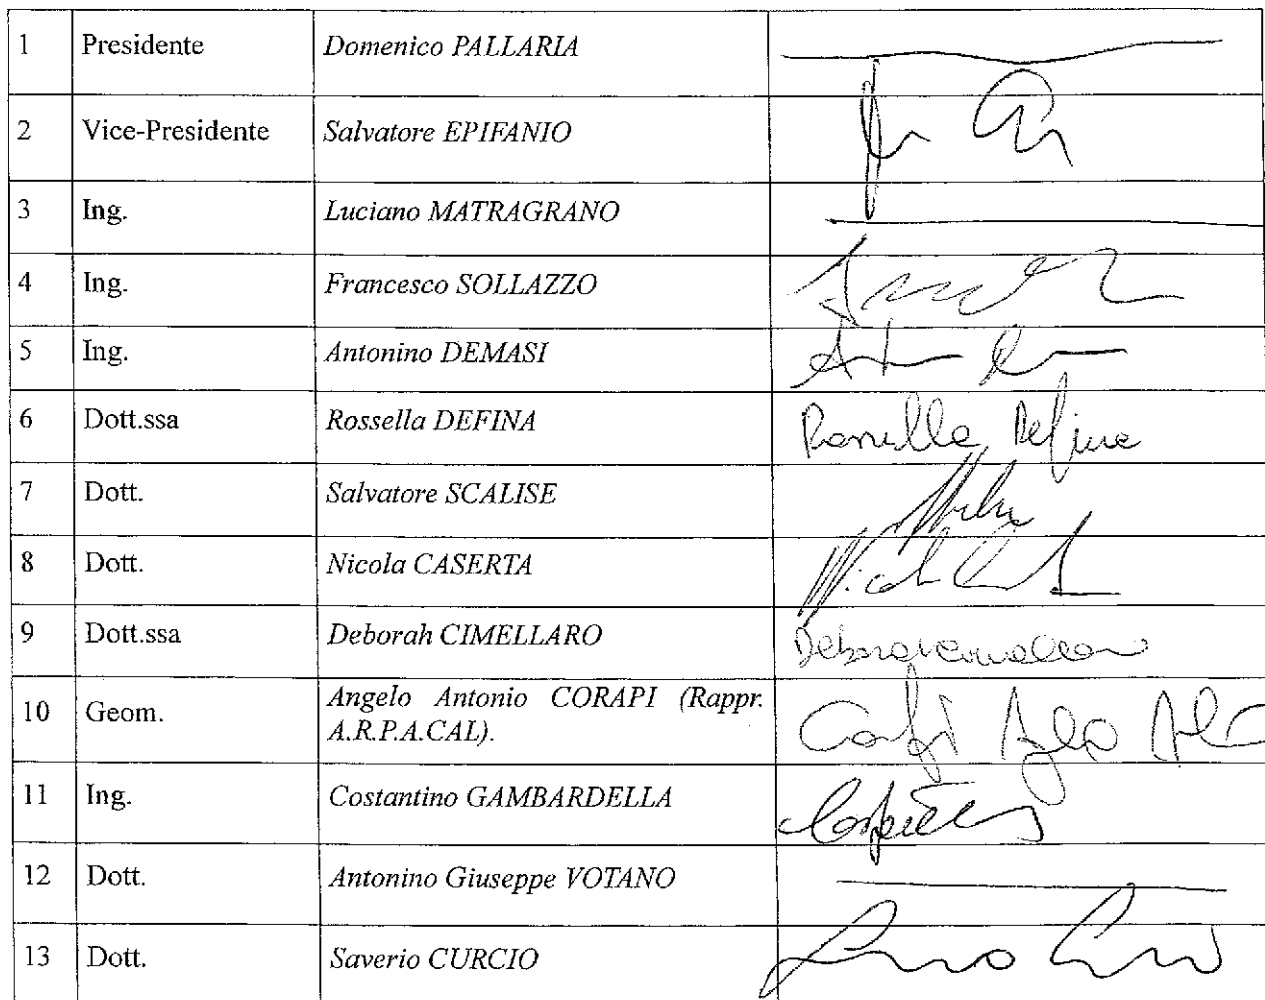 1 Presidente Domenico PALLARIA
2 Vice-Presidente Salvatore EPIFANIO
3 Ing. Luciano MATRAGRANO
4 Ing. Francesco SOLLAZZO
5 Ing. Antonino DEMASI
6 Dott.ssa Rossella DEFINA Rossella Defina
7 Dott. Salvatore SCALISE
8 Dott. Nicola CASERTA
9 Dott.ssa Deborah CIMELLARO
10 Geom. Angelo Antonio CORAPI (Rappr.
A.R.P.A.CAL).
11 Ing. Costantino GAMBARDELLA
12 Dott. Antonino Giuseppe VOTANO
13 Dott. Saverio CURCIO